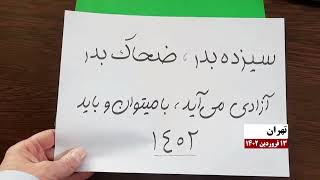 سیزده بدر ، ضحاک بدر
آزادی می‌آید ، با میتوان و باید
۱۴۰۲
تهران
۱۳ فروردین ۱۴۰۲